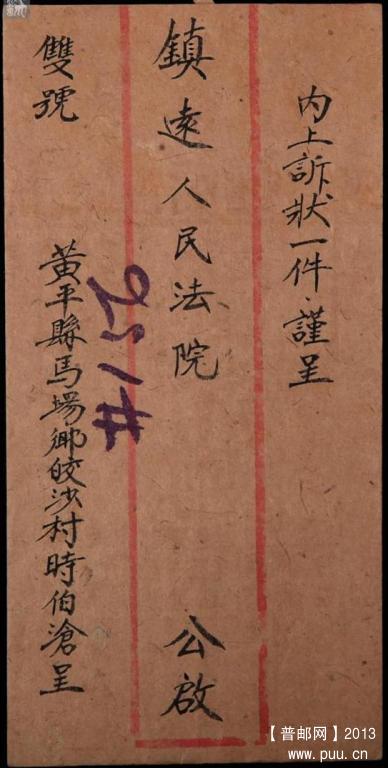 內上訴狀一件、謹呈
鎮遠人民法院 公啟
雙號
黃平縣馬場鄉皎沙村時伯滄呈
#157
【普邮网】2013
www.puu.cn